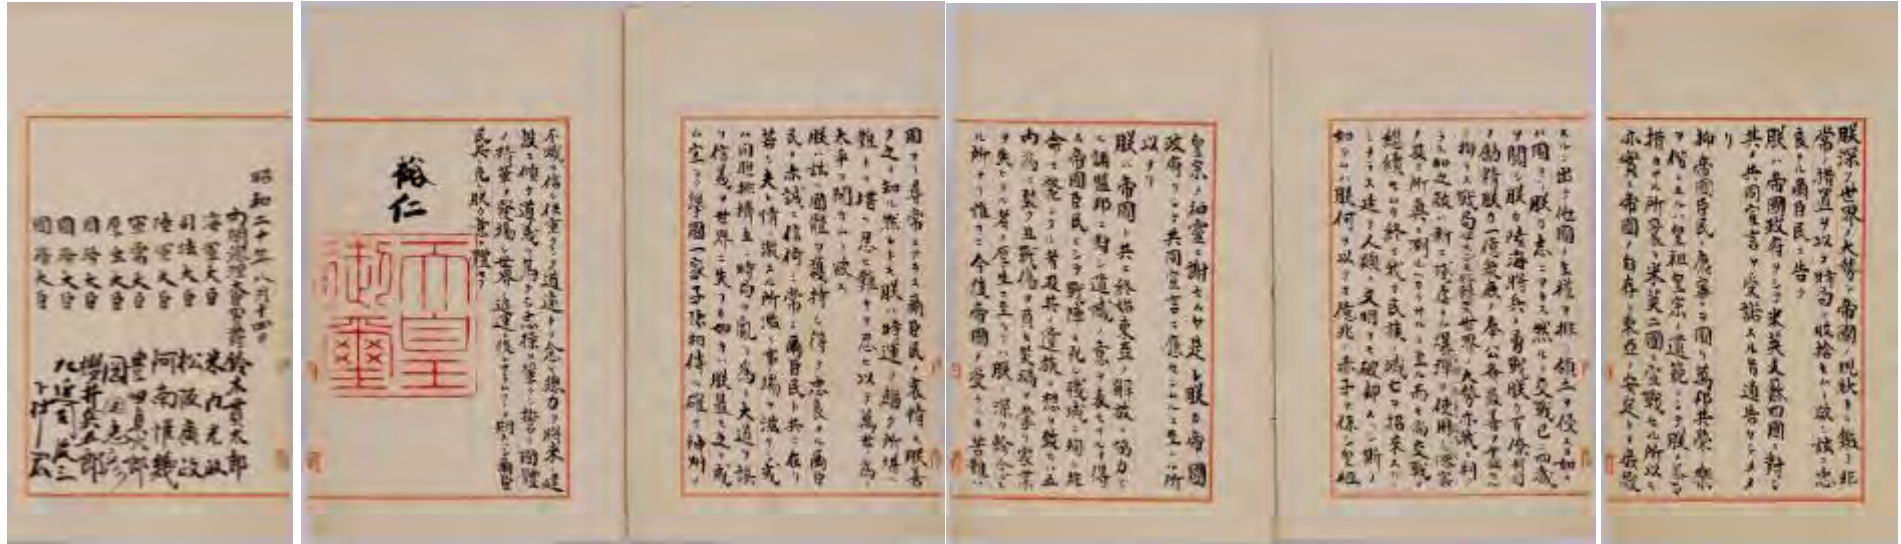 朕深ク世界ノ大勢ト帝國ノ現狀トニ鑑ミ非
常ノ措置ヲ以テ時局ヲ收拾セムト欲シ茲ニ忠
良ナル爾臣民ニ告ク
朕ハ帝國政府ヲシテ米英支蘇四國ニ對シ
其ノ共同宣言ヲ受諾スル旨通告セシメタ
リ
抑〻帝國臣民ノ康寧ヲ圖リ萬邦共榮ノ樂
ヲ偕ニスルハ皇祖皇宗ノ遺範ニシテ朕ノ拳々
措カサル所曩ニ米英二國ニ宣戰セル所以モ
亦實ニ帝國ノ自存ト東亞ノ安定トヲ庶幾
スルニ出テ他國ノ主權ヲ排シ領土ヲ侵スカ如キ
ハ固ヨリ朕カ志ニアラス然ルニ交戰已ニ四歳
ヲ閲シ朕カ陸海將兵ノ勇戰朕カ百僚有司
ノ勵精朕カ一億衆庶ノ奉公各〻最善ヲ盡セル
ニ拘ラス戰局必スシモ好轉セス世界ノ大勢亦我ニ利
アラス加之敵ハ新ニ殘虐ナル爆彈ヲ使用シ慘害
ノ及フ所眞ニ測ルヘカラサルニ至ル而モ尚交戰ヲ
繼續セムカ終ニ我カ民族ノ滅亡ヲ招來スルノミ
ナラス延テ人類ノ文明ヲモ破却スヘシ斯ノ
如クムハ朕何ヲ以テカ億兆ノ赤子ヲ保シ皇祖
皇宗ノ神靈ニ謝セムヤ是レ朕カ帝國
政府ヲシテ共同宣言ニ應セシムルニ至レル所
以ナリ
朕ハ帝國ト共ニ終始東亞ノ解放ニ協力セ
ル諸盟邦ニ對シ遺憾ノ意ヲ表セサルヲ得
ス帝國臣民ニシテ戰陣ニ死シ職域ニ殉シ非
命ニ斃レタル者及其ノ遺族ニ想ヲ致セハ五
内爲ニ裂ク且戰傷ヲ負ヒ災禍ヲ蒙リ家業
ヲ失ヒタル者ノ厚生ニ至リテハ朕ノ深ク軫念ス
ル所ナリ惟フニ今後帝國ノ受クヘキ苦難ハ
固ヨリ尋常ニアラス爾臣民ノ衷情モ朕善
ク之ヲ知ル然レトモ朕ハ時運ノ趨ク所堪ヘ
難キヲ堪ヘ忍ヒ難キヲ忍ヒ以テ萬世ノ爲ニ
太平ヲ開カムト欲ス
朕ハ茲ニ國體ヲ護持シ得テ忠良ナル爾臣
民ノ赤誠ニ信倚シ常ニ爾臣民ト共ニ在リ
若シ夫レ情ノ激スル所濫ニ事端ヲ滋クシ或
ハ同胞排擠互ニ時局ヲ亂リ爲ニ大道ヲ誤
リ信義ヲ世界ニ失フカ如キハ朕最モ之ヲ戒
ム宜シク擧國一家子孫相傳ヘ確ク神州ノ
不滅ヲ信シ任重クシテ道遠キヲ念ヒ總力ヲ將來ノ建
設ニ傾ケ道義ヲ篤クシ志操ヲ鞏クシ誓テ國體
ノ精華ヲ發揚シ世界ノ進運ニ後レサラムコトヲ期スヘシ爾臣
民其レ克ク朕カ意ヲ體セヨ
裕仁
天皇
御璽
昭和二十年八月十四日
内閣總理大臣男爵 鈴木貫太郎
海軍大臣 米内光政
司法大臣 松阪廣政
陸軍大臣 阿南惟幾
軍需大臣 豐田貞次郎
厚生大臣 岡田忠彦
國務大臣 櫻井兵五郎
國務大臣 左近司政三
國務大臣 下村宏